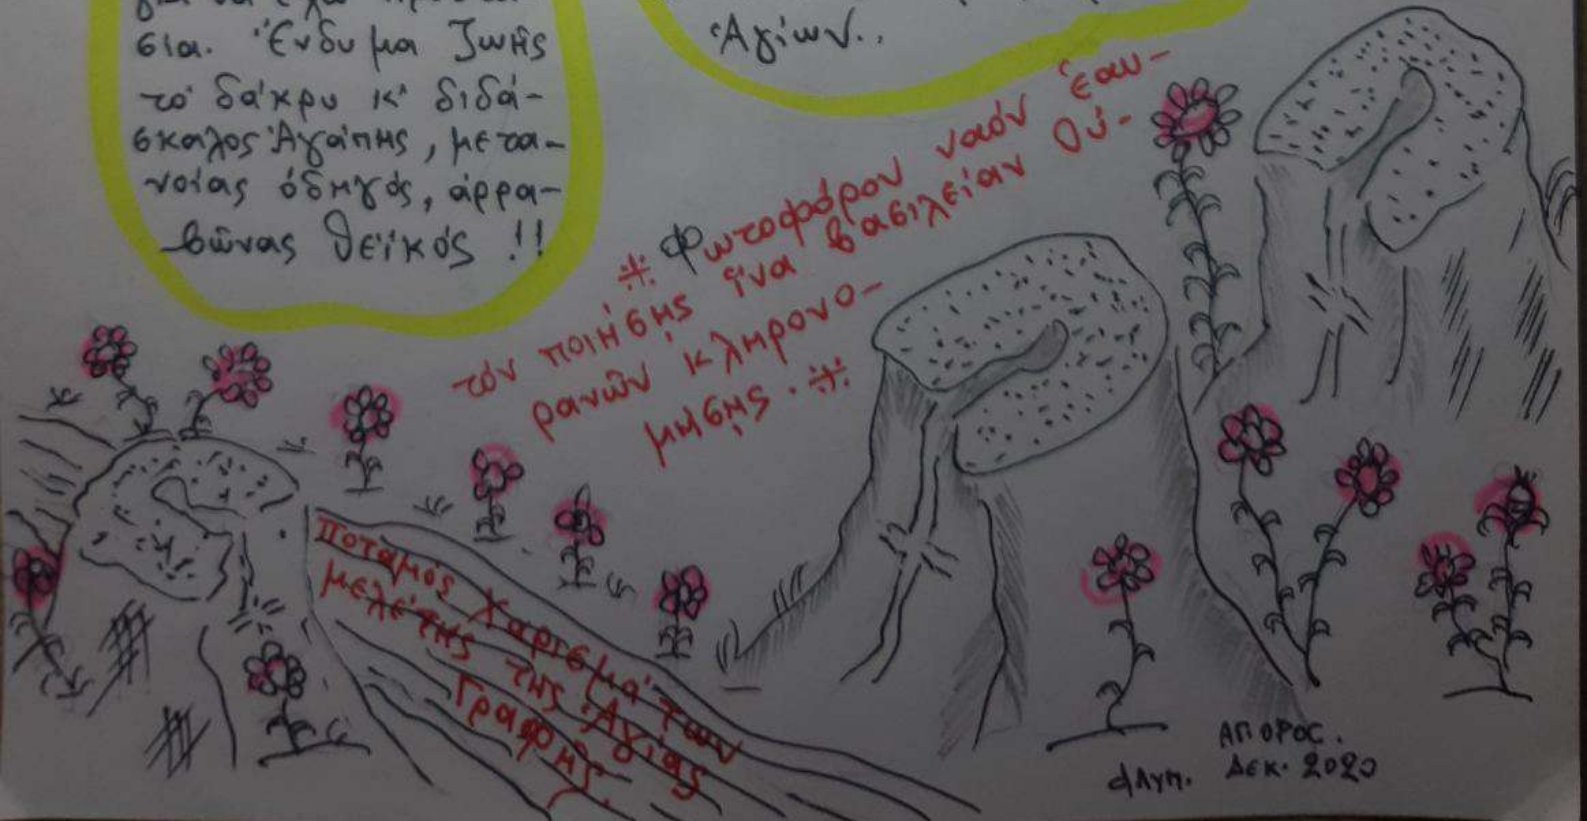 σια. Ἔνδυμα Ζωῆς
τό δάκρυ κ' διδά-
σκαλος Ἀγάπης, μετα-
νοίας ὁδηγός, ἀρρα-
βῶνας θεϊκός !!
Ἁγίων..
※ Φωτοφόρον ναόν ἑαυ-
τόν ποιήσῃς ἵνα βασιλείαν Οὐ-
ρανῶν κληρονο-
μήσῃς. ※
Ποταμός Χαρισμάτων
μελέτης τῆς Ἁγίας
Γραφῆς.
ΑΓ. ΟΡΟΣ.
ΔΕΚ. 2020